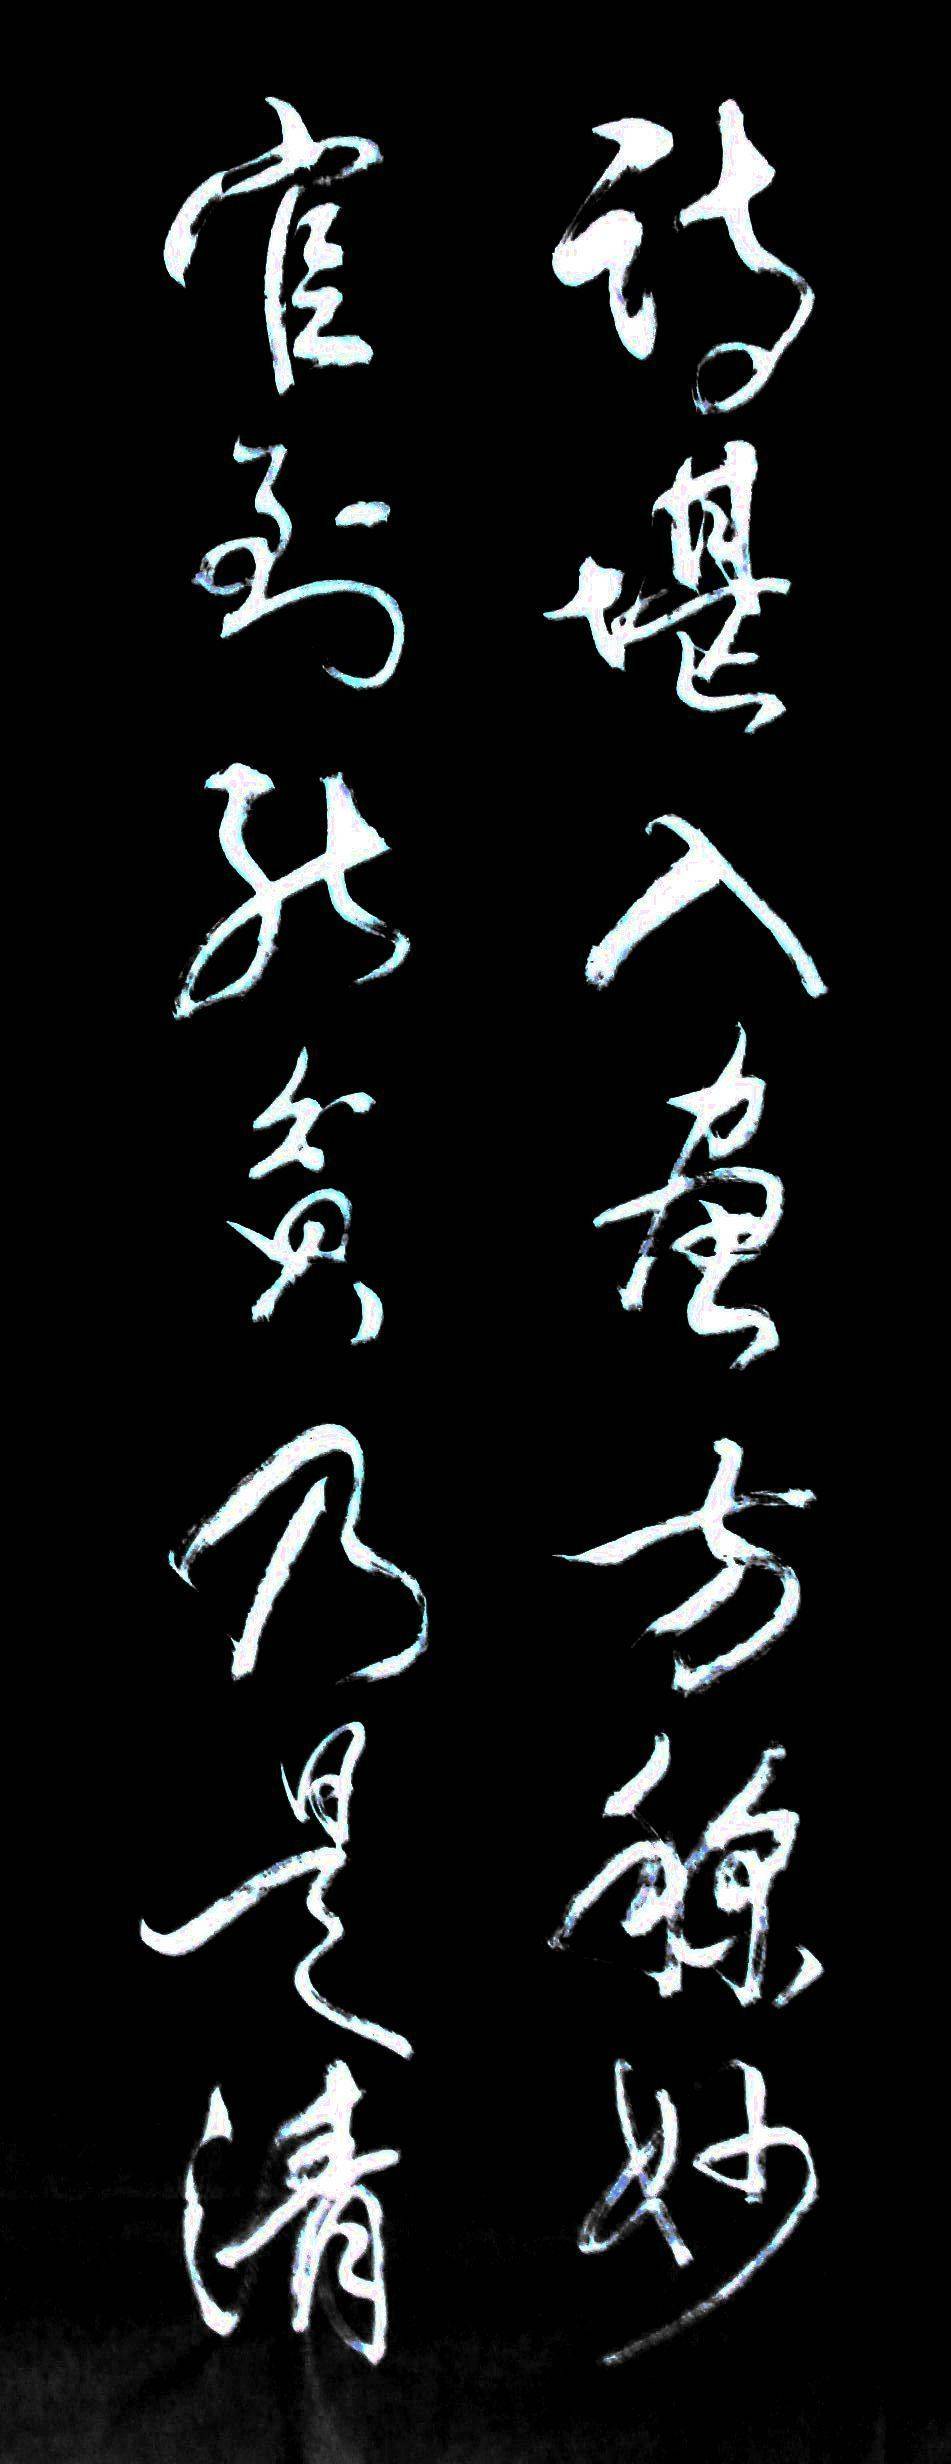 詩堪入畫方稱妙
官到能貧乃是清